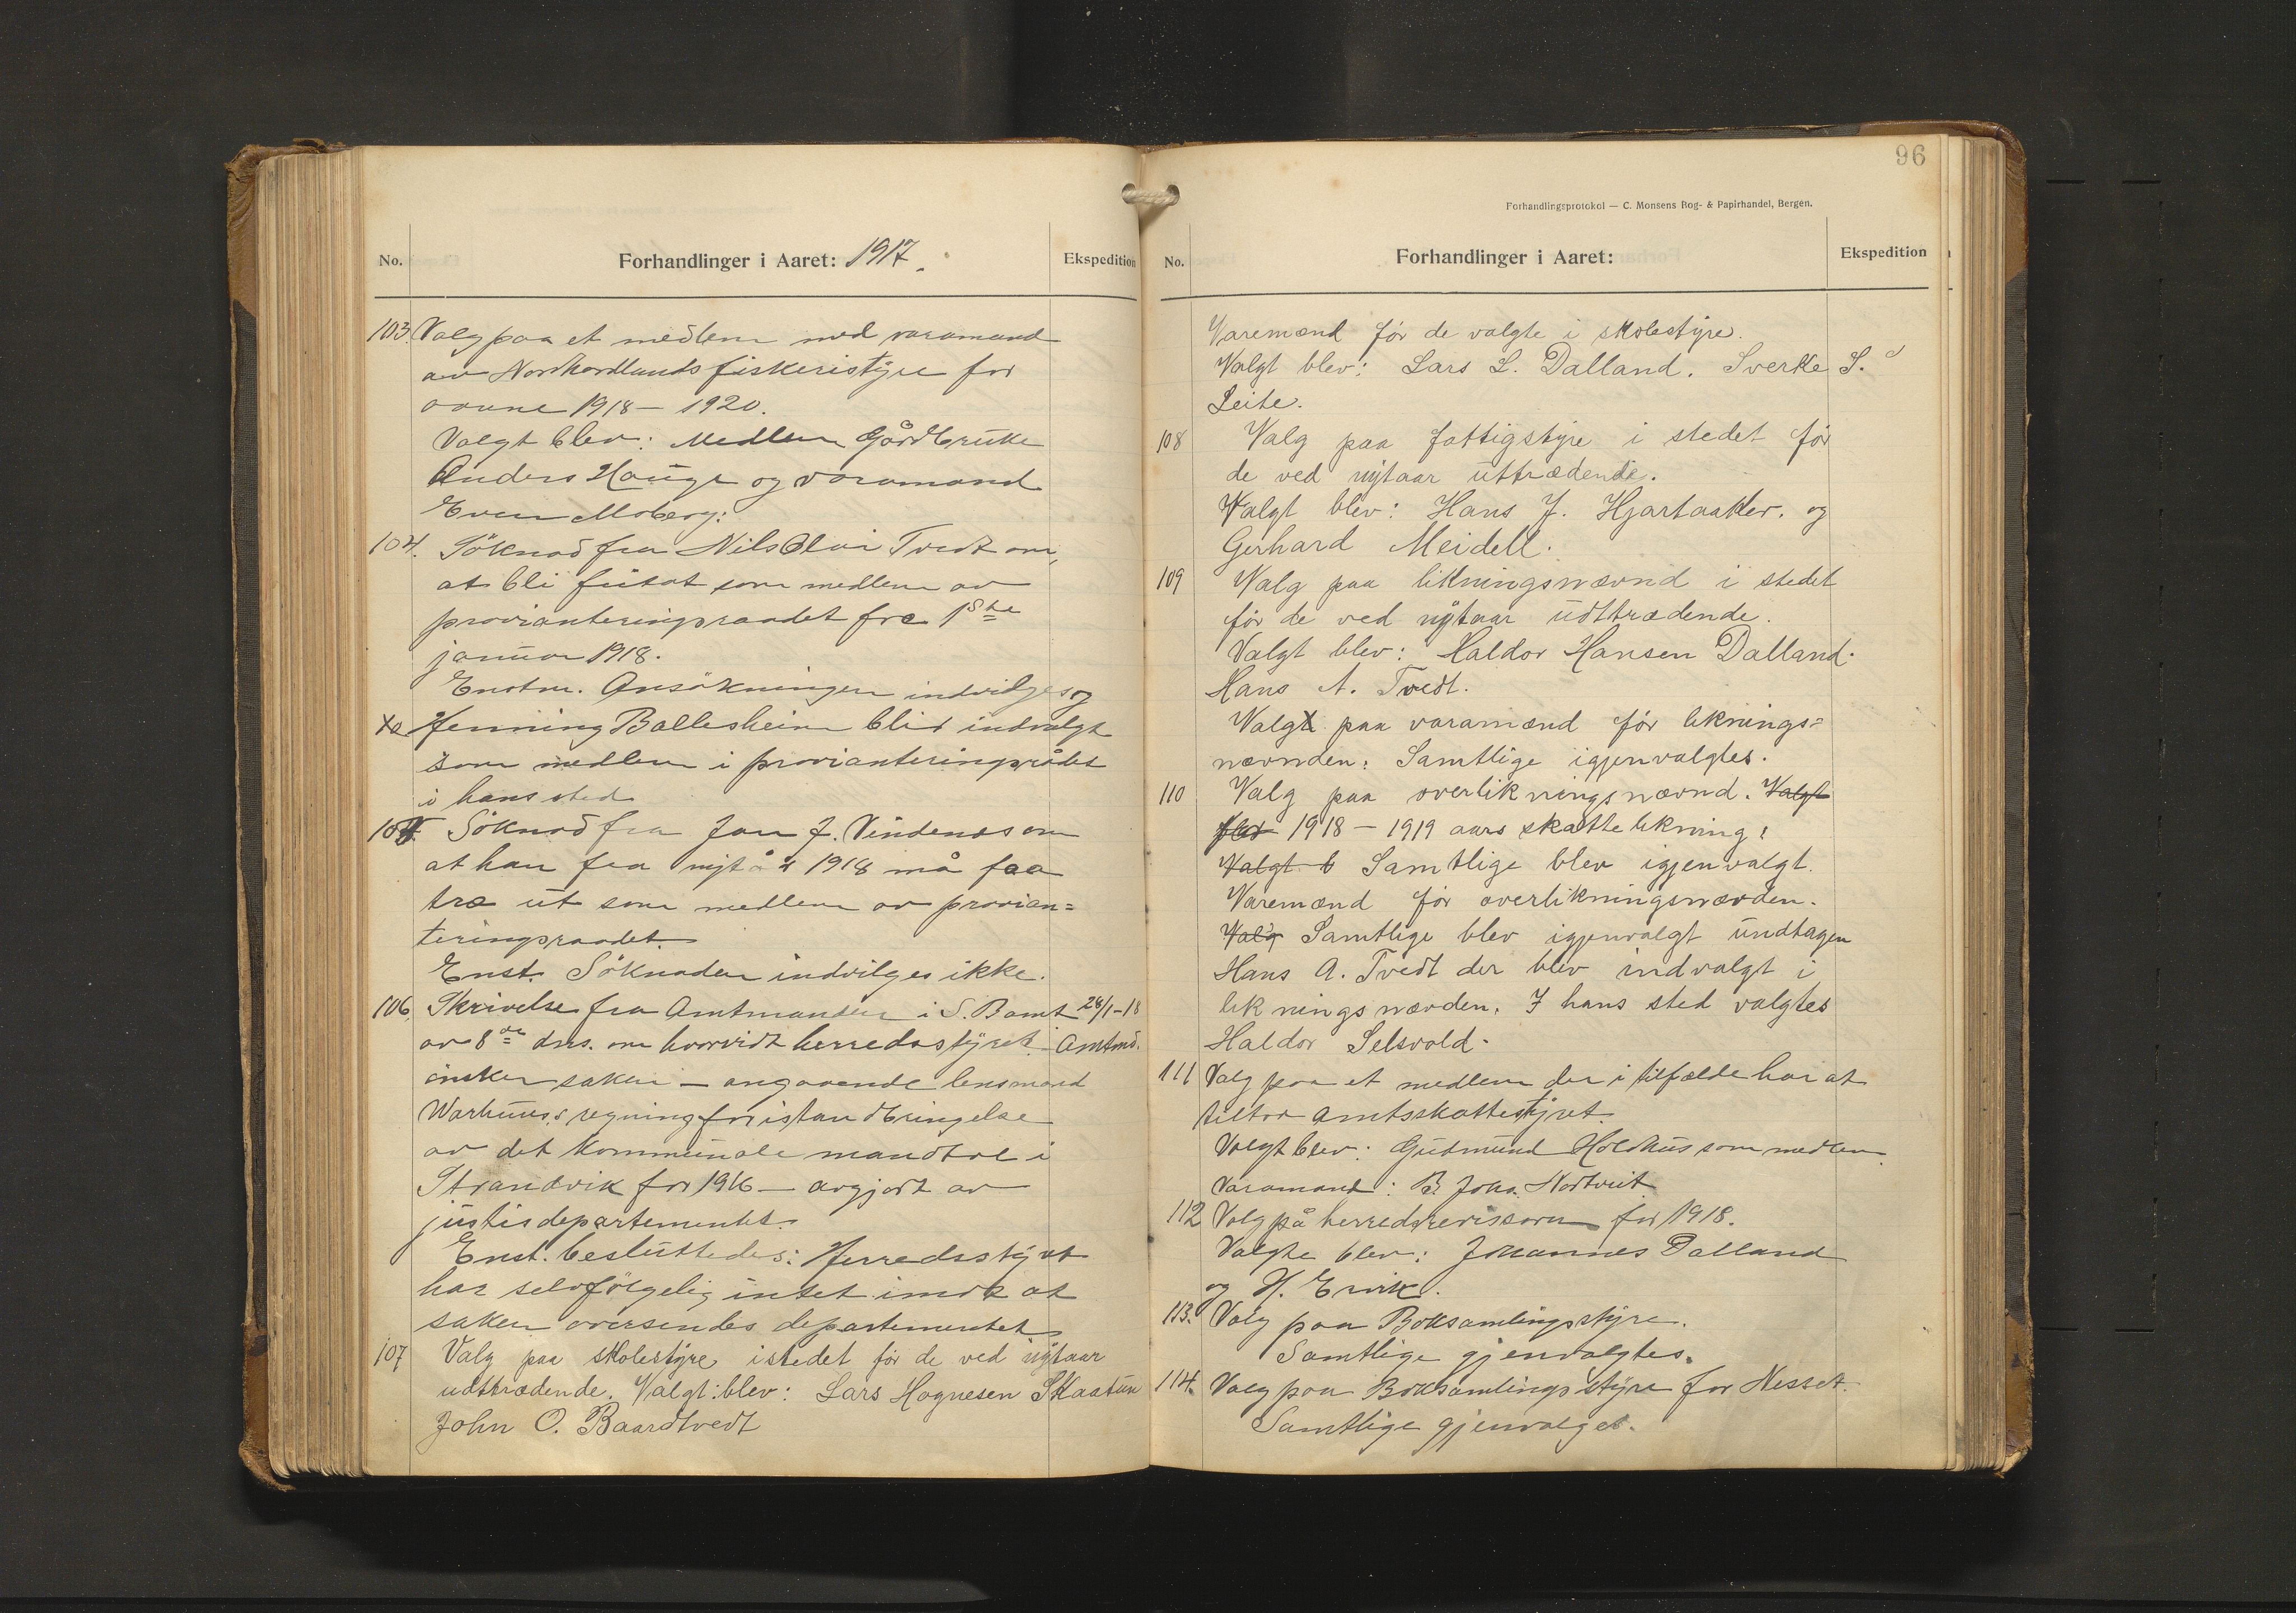 No.
Forhandlinger i Aaret: 1917.
Ekspedition
103. Valg paa et medlem med varamand
av Nordhordlands fiskeristyre for
aarene 1918 – 1920.
Valgt blev: Medlem Gårdbruke
Anders Hauge og varamand
Even Moberg:
104. Söknad fra Nils Olai Tvedt om,
at bli fritat som medlem av
provianteringsraadet fra 1ste
januar 1918.
Enstm. Ansökningen indvilges og
Henning Ballesheim blir indvalgt
som medlem i provianteringsrådet
i hans sted
105. Söknad fra Jon J. Vindenes om
at han fra nytår 1918 må faa
træ ut som medlem av provian=
teringsraadet.
Enst. Söknaden indvilges ikke.
106. Skrivelse fra Amtmanden i S. B. amt 24/1-18
av 8de dns. om hvorvidt herredsstyret Amtmd.
önsker saken – angaaende lensmand
Warhuus's regning for istandbringelse
av det kommunale mandtal i
Strandvik for 1916 – avgjort av
justisdepartementet.
Enst. besluttedes: Herredsstyret
har selvfölgelig intet imot at
saken oversendes departementet
107 Valg paa skolestyre istedet för de ved nytaar
udttrædende. Valgt blev: Lars Hognesen Skaatun
John O. Baardtvedt
96
Forhandlingsprotokol — C. Monsens Bog- & Papirhandel, Bergen.
No.
Forhandlinger i Aaret:
Ekspedition
Varemænd för de valgte i skolestyre.
Valgt blev: Lars L. Dalland. Sverke S.
Leite.
108 Valg paa fattigstyre i stedet för
de ved nytaar uttrædende.
Valgt blev: Hans J. Hjartaaker. og
Gerhard Meidell.
109 Valg paa likningsnævnd i stedet
för de ved nytaar udttrædende.
Valgt blev: Haldor Hansen Dalland.
Hans A. Tvedt.
Valgt paa varamænd för liknings=
nævnden: Samtlige igjenvalgtes.
110 Valg paa overlikningsnævnd. Valgt
1918 – 1919 aars skattelikning:
Valgt b Samtlige blev igjenvalgt.
Varemænd för overlikningsnævden.
Valg Samtlige blev igjenvalgt undtagen
Hans A. Tvedt der blev indvalgt i
likningsnævden. I hans sted valgtes
Haldor Selsvold.
111 Valg paa et medlem der i tilfælde har at
tiltræ amtsskattestyret.
Valgt blev: Gudmund Holdhus som medlem.
Varamand: B. Johs. Nordtveit
112 Valg på herredsrevisorer for 1918.
Valgte blev: Johannes Dalland
og H. Ervik.
113. Valg paa Boksamlingsstyre.
Samtlige gjenvalgtes.
114. Valg paa Boksamlingsstyre for Nesset.
Samtlige gjenvalget.